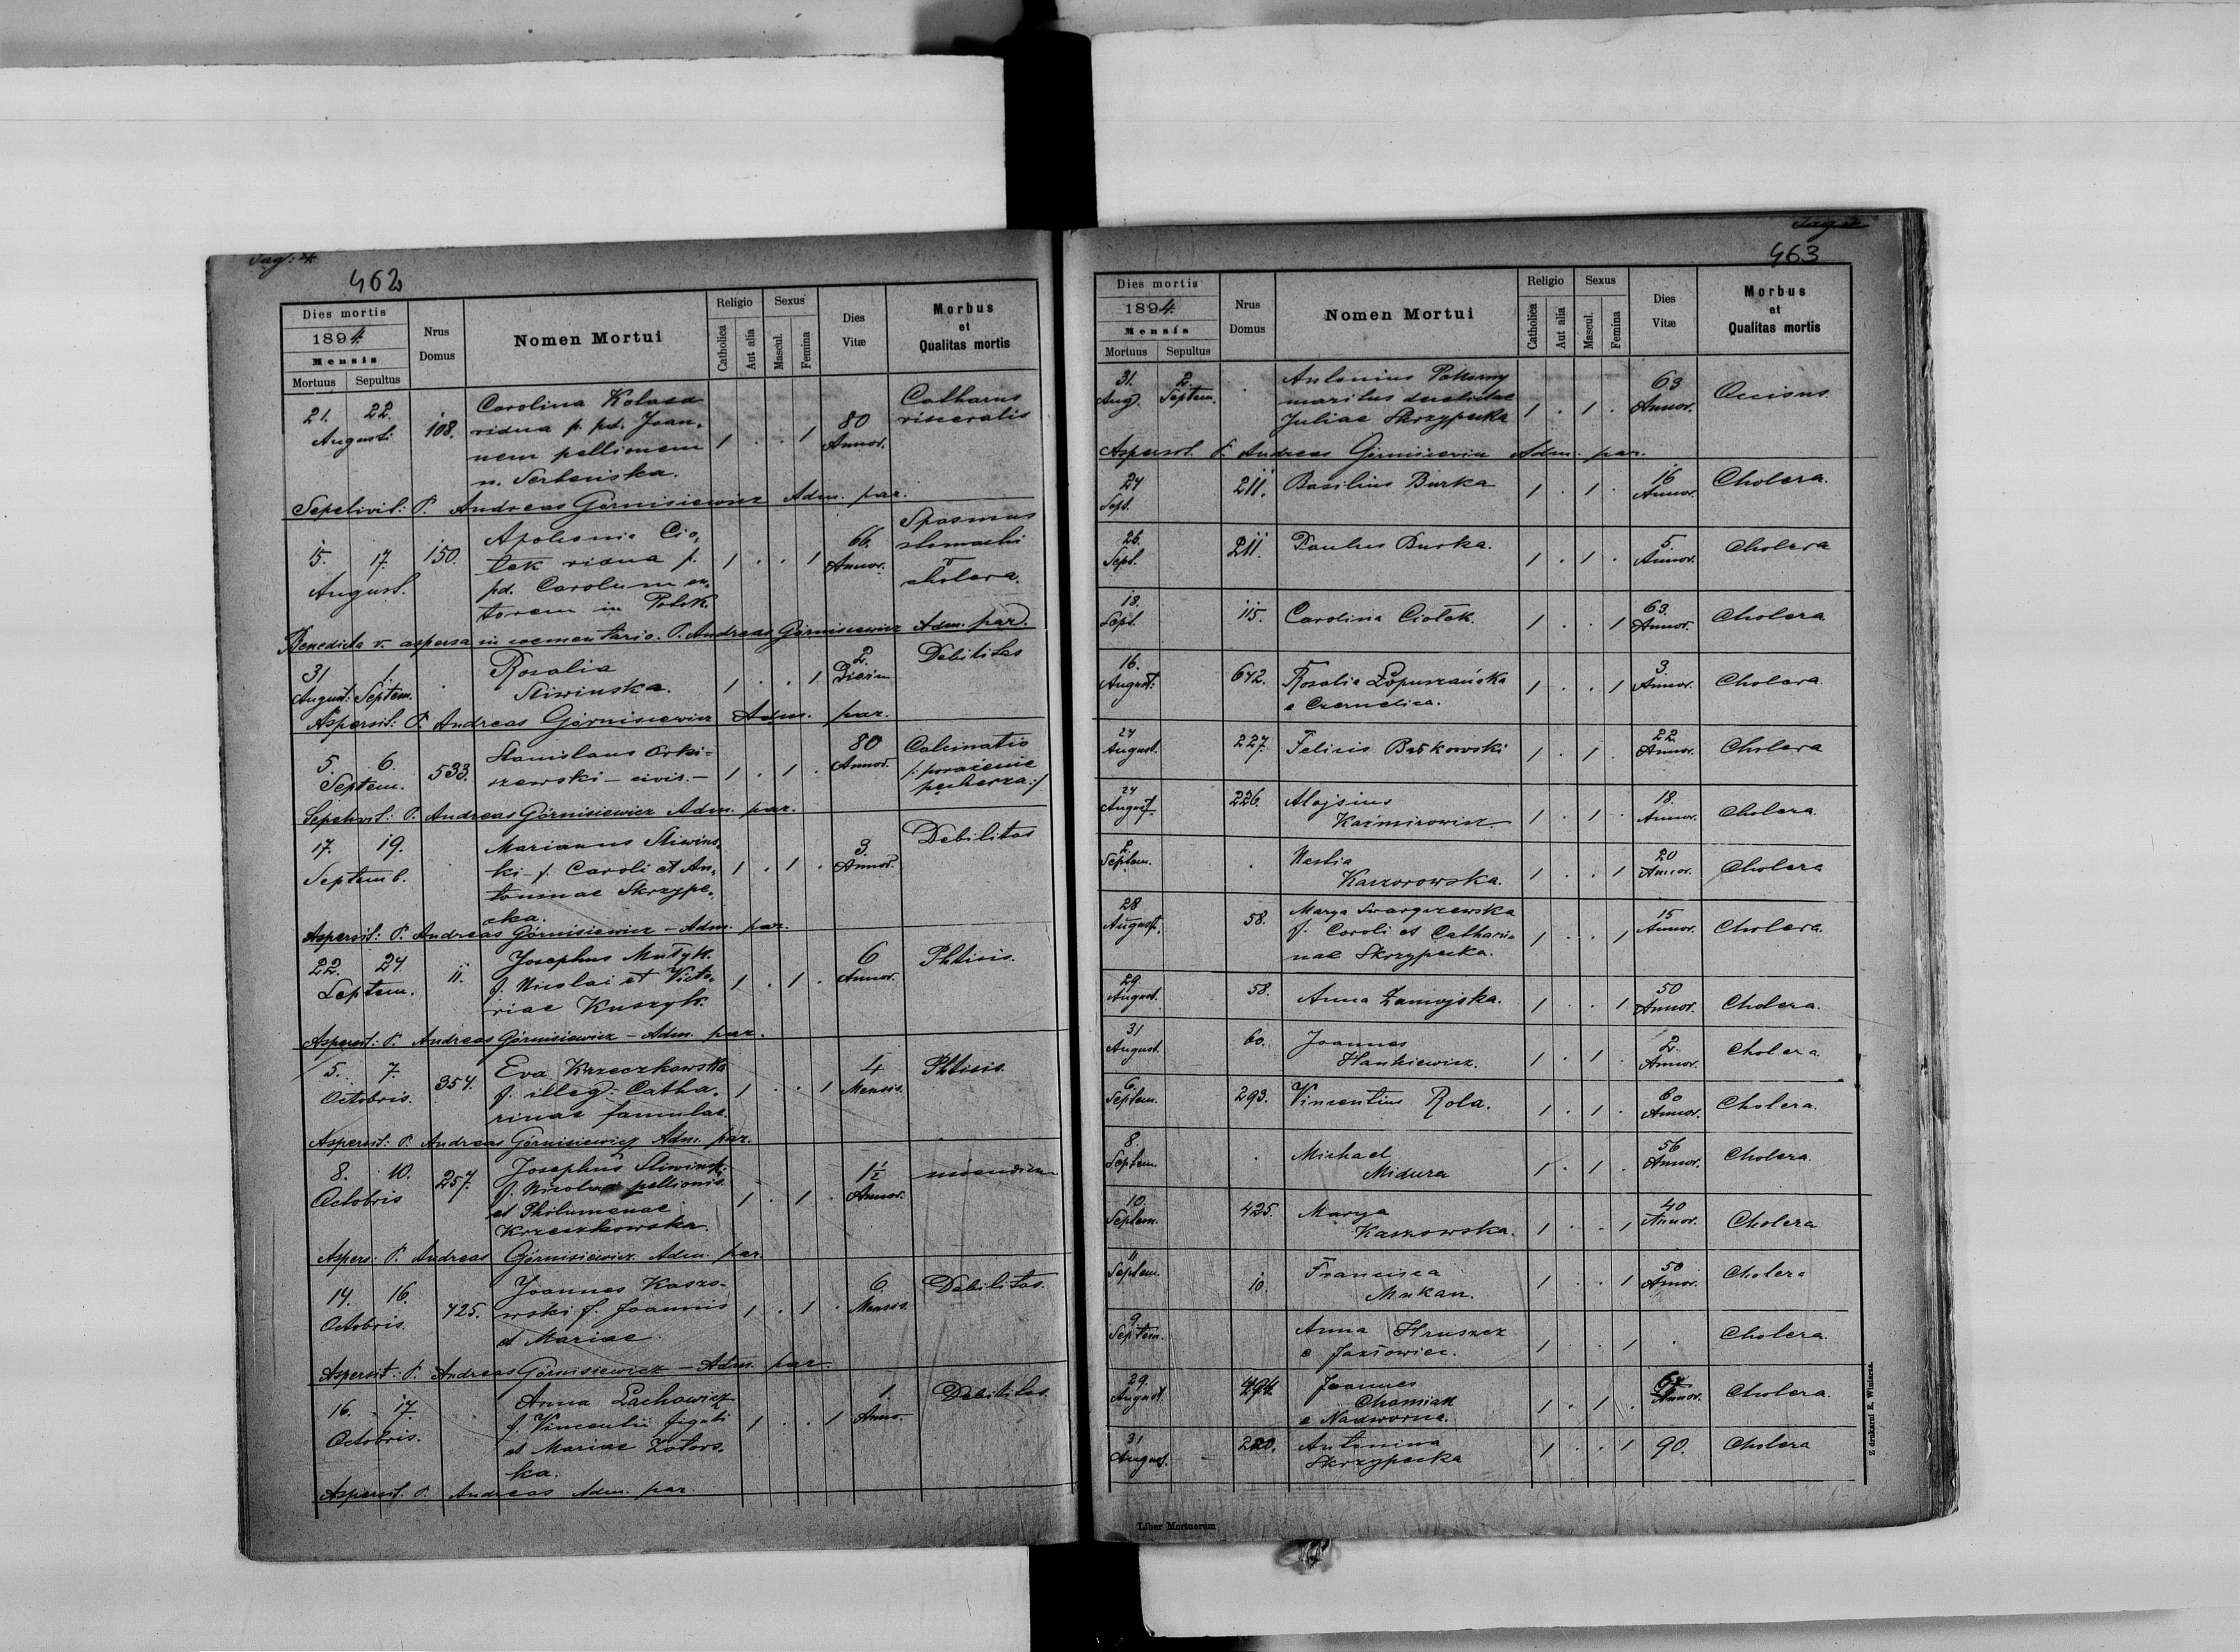 462
Dies mortis
1894.
Mensis
Mortuus Sepultus
Nrus Domus
Nomen Mortui
Religio
Catholica
Aut alia
Sexus
Mascul.
Femina
Dies Vitæ
Morbus et Qualitas mortis
21. 22. Augusti 108. Carolina Kolasa 1 . . 1 80 Annor. Catharus visceralis
vidua p. pd. Joan-
nem pellionem
n. Serbeńska.
Sepelivit: P. Andreas Górnisiewicz Adm. par.
15. 17. August. 150. Apolonia Cio- 1 . . 1 66. Annor. Spasmus stomachi cholera.
łek vidua p.
pd. Carolum
in Potok.
Benedicta v. aspersa in coementario. P. Andreas Górnisiewicz Adm. par.
31 August: 1. Septem. . Rosalia 1 . . 1 2. Dierum Debilitas
Sliwinska.
Aspersit: P. Andreas Górnisiewicz Adm. par.
5. 6. Septem. 533. Stanislaus Orki- 1 . 1 . 80 Annor. Calcinatio
szewski - civis. - /: porażenie
pęcherza :/
Sepelivit: P. Andreas Górnisiewicz Adm. par.
17. 19. Septemb. . Marianus Sliwins- 1 . 1 . 3. Annor. Debilitas
ki f. Caroli et An-
toninae Skrzype-
cka.
Aspersit: P. Andreas Górnisiewicz - Adm. par.
22. 24. Septem. 11. Josephus Mutyk. 1 . 1 . 6 Annor. Phtisis.
f. Nicolai et Victo-
riae Kuszyk.
Aspersit: P. Andreas Górnisiewicz - Adm. par.
5. 7. Octobris. 354. Eva Krzeczkowska 1 . . 1 4 Mensis. Phtisis.
f. illeg. Catha-
rinae famulae.
Aspersit: P. Andreas Górnisiewicz Adm. par.
8. 10. Octobris 257. Josephus Sliwinski 1 . 1 . 1½ Annor.
f. Nicolai pellionis
et Philumenae
Krzeczkowska.
Aspers: P. Andreas Górnisiewicz Adm. par.
14. 16. Octobris. 425. Joannes Kaszo- 1 . 1 . 6. Mensis. Debilitas.
wski f. Joannis
et Mariae
Aspersit: P. Andreas Górnisiewicz - Adm. par.
16. 17. Octobris. Anna Lachowicz 1 . . 1 1. Anno. Debilitas.
f. Vincentii figuli
et Mariae Zotors-
ka.
Aspersit. P. Andreas Adm. par.
463
Dies mortis
1894.
Mensis
Mortuus Sepultus
Nrus Domus
Nomen Mortui
Religio
Catholica
Aut alia
Sexus
Mascul.
Femina
Dies Vitæ
Morbus et Qualitas mortis
31. Aug. 2. Septem. . Antonius Pokorny 1 . 1 . 63 Annor. Occisus.
maritus derelictae
Juliae Skrzypecka
Aspersit. P. Andreas Górnisiewicz Adm. par.
24 Sept. 211. Basilius Burka 1 . 1 . 16 Annor. Cholera.
26. Sept. 211. Paulus Burka. 1 . 1 . 5. Annor. Cholera
18. Sept. 115. Carolina Ciołek. 1 . . 1 63. Annor. Cholera.
16. August: 642. Rosalia Łopuszańska 1 . . 1 3. Annor. Cholera.
e Czernelica.
24 August. 227. Felicis Bułkowski 1 . 1 . 22. Annor. Cholera
24 August. 226. Alojsius 1 . 1 . 18. Annor. Cholera.
Kaźmirowicz.
2. Septem. . Nastia 1 . . 1 20 Annor. Cholera
Kaczorowska.
28 August. 58. Marya Swaryczewska 1 . . 1 15 Annor. Cholera.
f. Caroli et Cathari-
nae Skrzypecka.
29 August. 58. Anna Zamojska. 1 . . 1 50 Annor. Cholera.
31 August. 60. Joannes 1 . 1 . 2. Annor. Cholera.
Hankiewicz.
6. Septem. 293. Vincentius Rola. 1 . 1 . 60 Annor. Cholera.
8. Septem. . Michael 1 . 1 . 56 Annor. Cholera.
Midura
10. Septem. 425. Marya 1 . . 1 40 Annor. Cholera
Kaszowska.
11 Septem. 10. Francisca 1 . . 1 50 Annor. Cholera
Makan.
9 Septem. Anna Hruszcz 1 . . 1 . Cholera.
e Jazłowiec.
29. August. 494. Joannes 1 . 1 . 67 Annor. Cholera.
Chomiak
e Nadworna.
31 August. 220. Antonina 1 . . 1 90. Cholera
Skrzypecka
Liber Mortuorum
Z drukarni E. Winiarza.